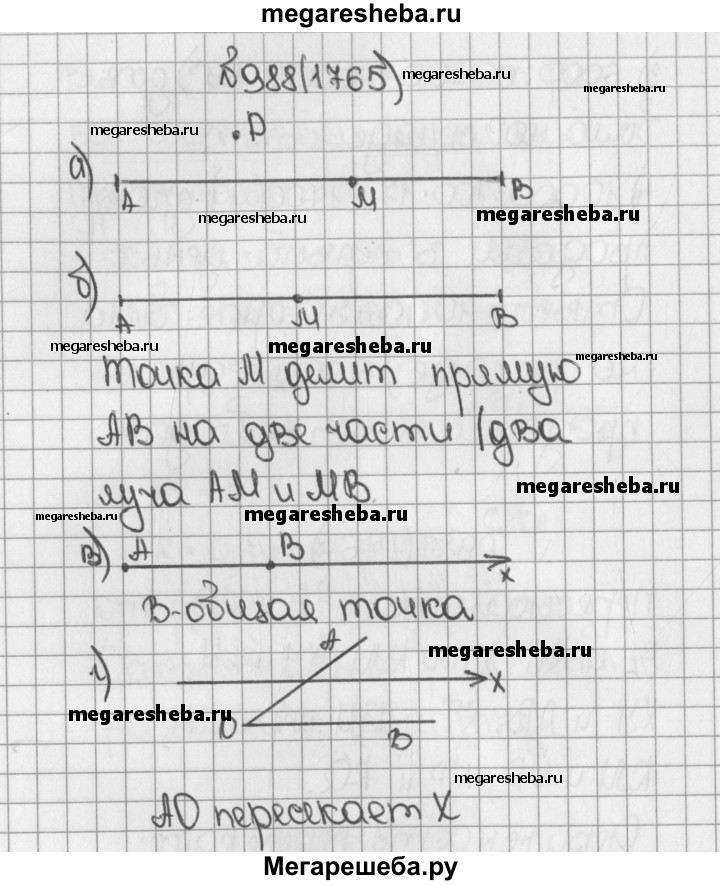 megaresheba.ru
№988(1765)
megaresheba.ru
megaresheba.ru
megaresheba.ru
.D
а)
A M B
megaresheba.ru
megaresheba.ru
б)
A M B
megaresheba.ru
megaresheba.ru
megaresheba.ru
Точка М делит прямую
АВ на две части (два
луча АМ и МВ.
megaresheba.ru
megaresheba.ru
megaresheba.ru
в) A B x
В-общая точка
megaresheba.ru
г) A X
megaresheba.ru
O B
megaresheba.ru
АО пересекает X
Мегарешеба.ру